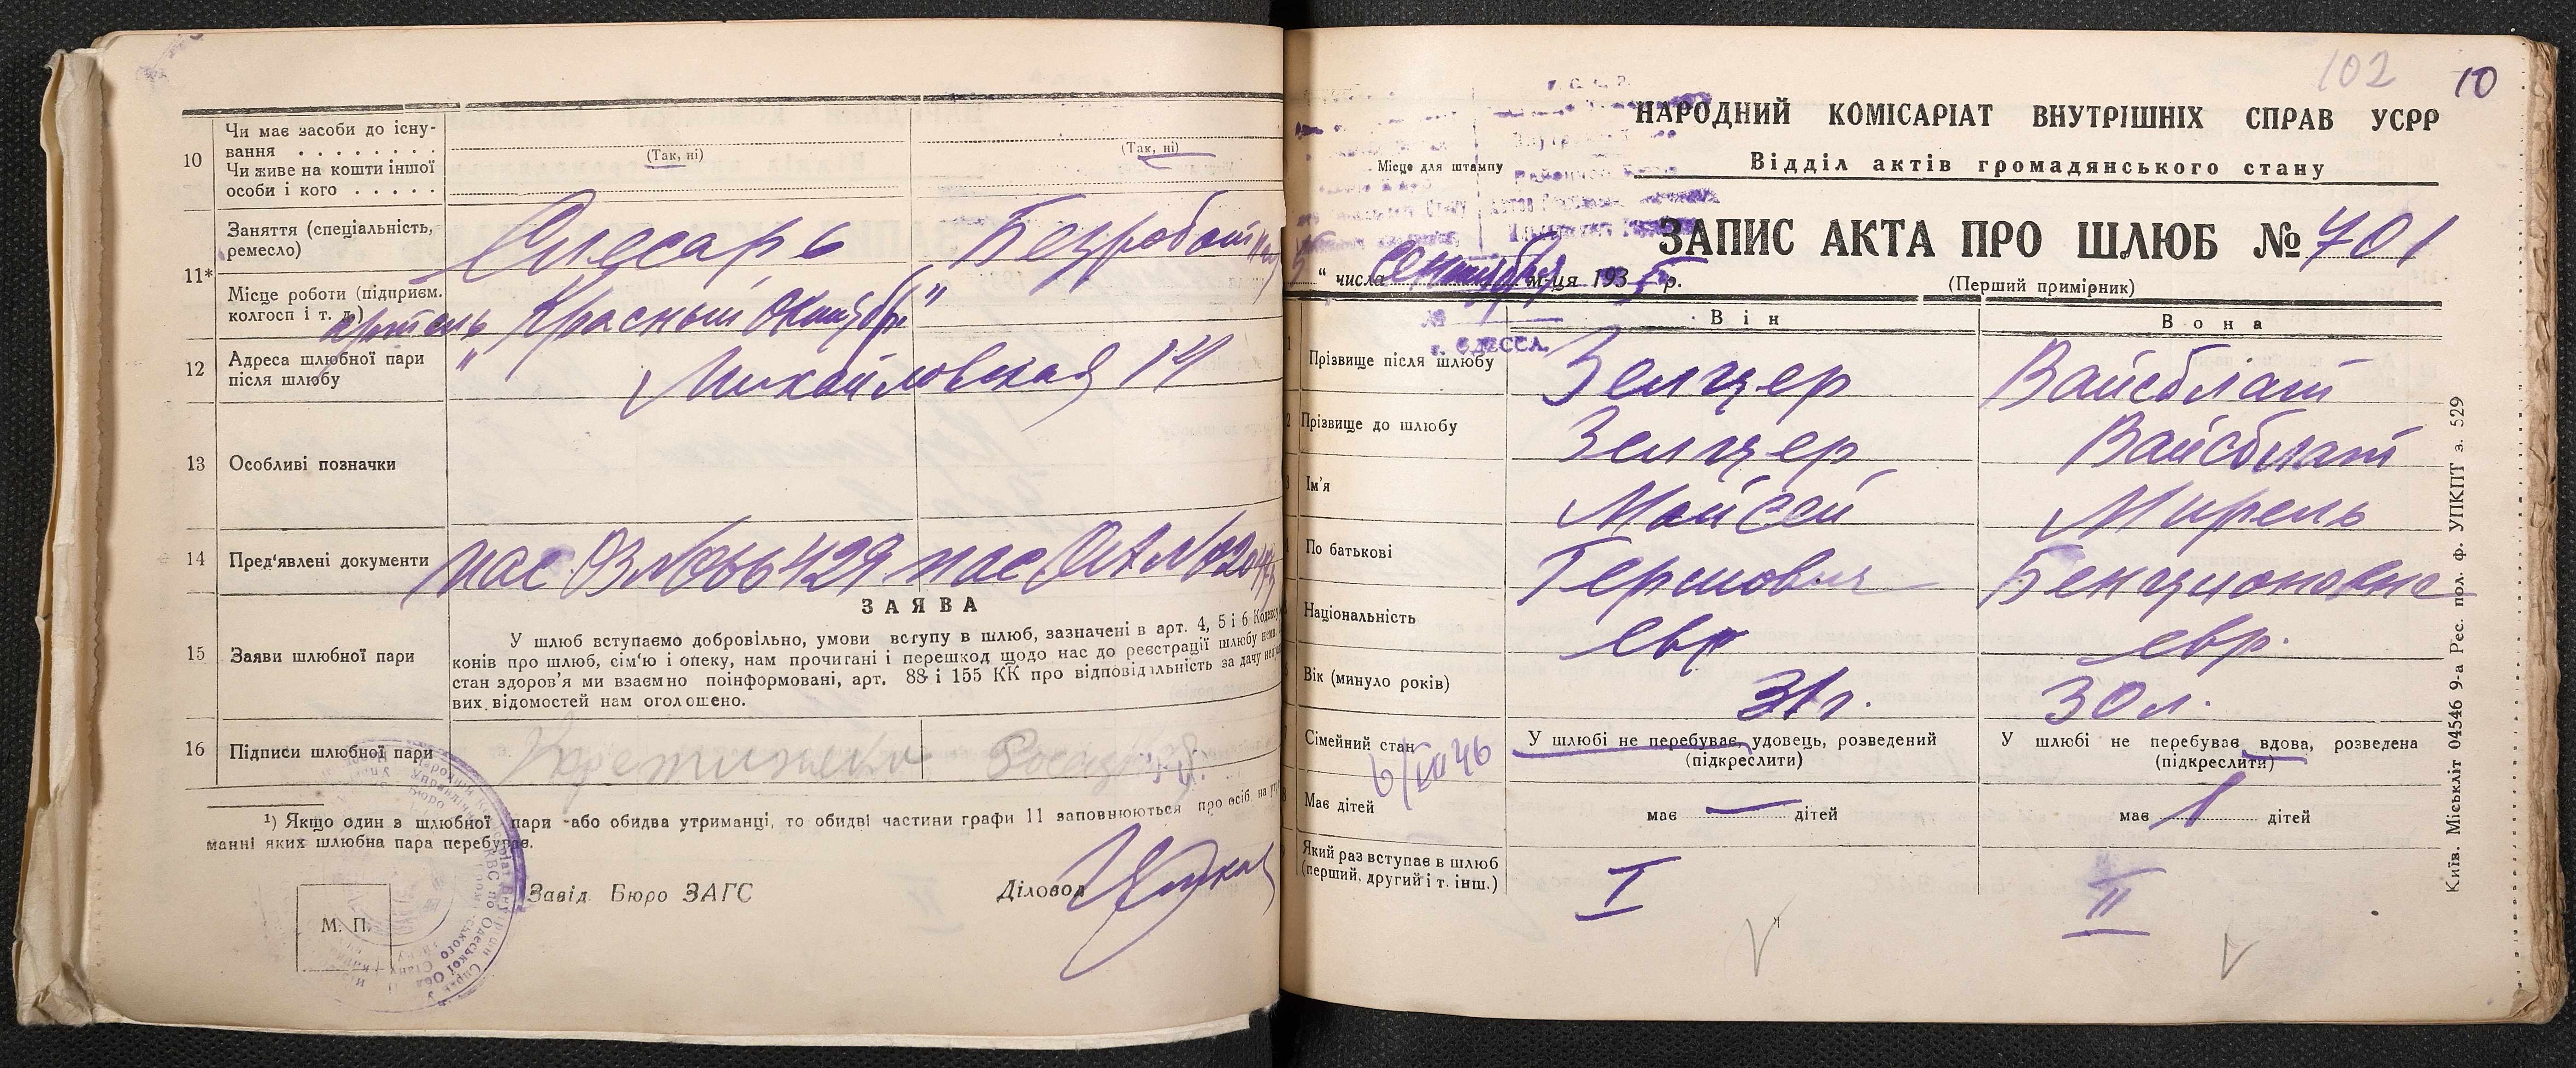 10
Чи має засоби до існу-
вання . . . . . . . .
Чи живе на кошти іншої
особи і кого . . . . .
(Так, ні)
(Так, ні)
11*
Заняття (спеціальність,
ремесло)
Слесарь
Безработн
Місце роботи (підприєм.
колгосп і т. д.)
артель "Красный Октябрь"
12
Адреса шлюбної пари
після шлюбу
Михайловская 14
13
Особливі позначки
14
Пред'явлені документи
пас ОЗ №066429
пас
ЗАЯВА
15
Заяви шлюбної пари
У шлюб вступаємо добровільно, умови вступу в шлюб, зазначені в арт. 4, 5 і 6 Кодексу
конів про шлюб, сім'ю і опеку, нам прочитані і перешкод щодо нас до реєстрації шлюбу нема.
стан здоров'я ми взаємно поінформовані, арт. 88 і 155 КК про відповідальність за дачу
вих відомостей нам оголошено.
16
Підписи шлюбної пари
¹) Якщо один з шлюбної пари або обидва утриманці, то обидві частини графи 11 заповнюються про осіб, на
манні яких шлюбна пара перебуває.
Завід. Бюро ЗАГС
Діловод
М. П.
102
10
НАРОДНИЙ КОМІСАРІАТ ВНУТРІШНІХ СПРАВ УСРР
Місце для штампу
Відділ актів громадянського стану
ЗАПИС АКТА ПРО ШЛЮБ № 701
" числа Сентября м-ця 1935 р.
(Перший примірник)
№
г. ОДЕССА.
Він
Вона
Прізвище після шлюбу
Зелцер
Вайсблат
Прізвище до шлюбу
Зелцер
Вайсблат
Ім'я
Мойсей
Мирель
По батькові
Гершович
Бенционовна
Національність
евр
евр.
Вік (минуло років)
31 г.
30 л.
Сімейний стан
6/VIII 46
У шлюбі не перебував, удовець, розведений
(підкреслити)
У шлюбі не перебував, вдова, розведена
(підкреслити)
Має дітей
має — дітей
має 1 дітей
Який раз вступає в шлюб
(перший, другий і т. інш.)
I
II
Київ. Міськліт 04546 9-а Рес. пол. ф. УПКПТ з. 529